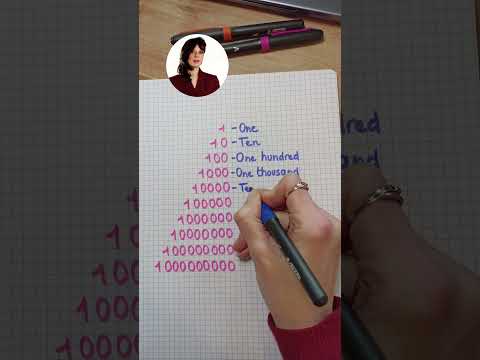 1 - One
10 - Ten
100 - One hundred
1000 - One thousand
10000 - Te
100000
1000000
10000000
100000000
1000000000